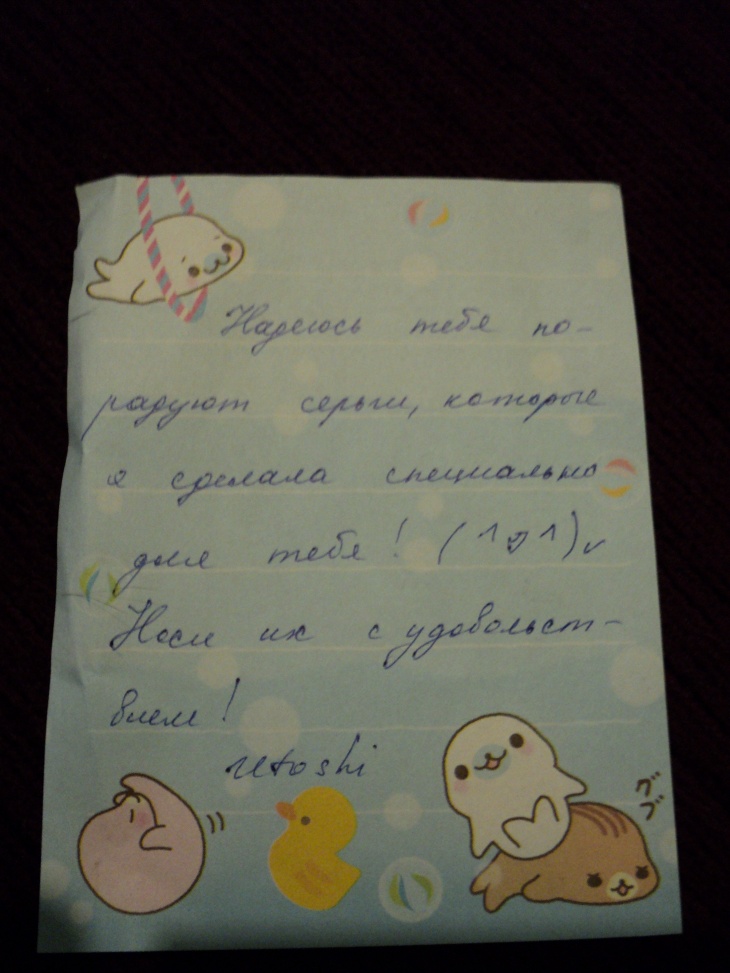 Надеюсь тебя по-
радуют серьги, которые
я сделала специально
для тебя! (^_^)v
Носи их с удовольст-
вием!
retoshi
ググ